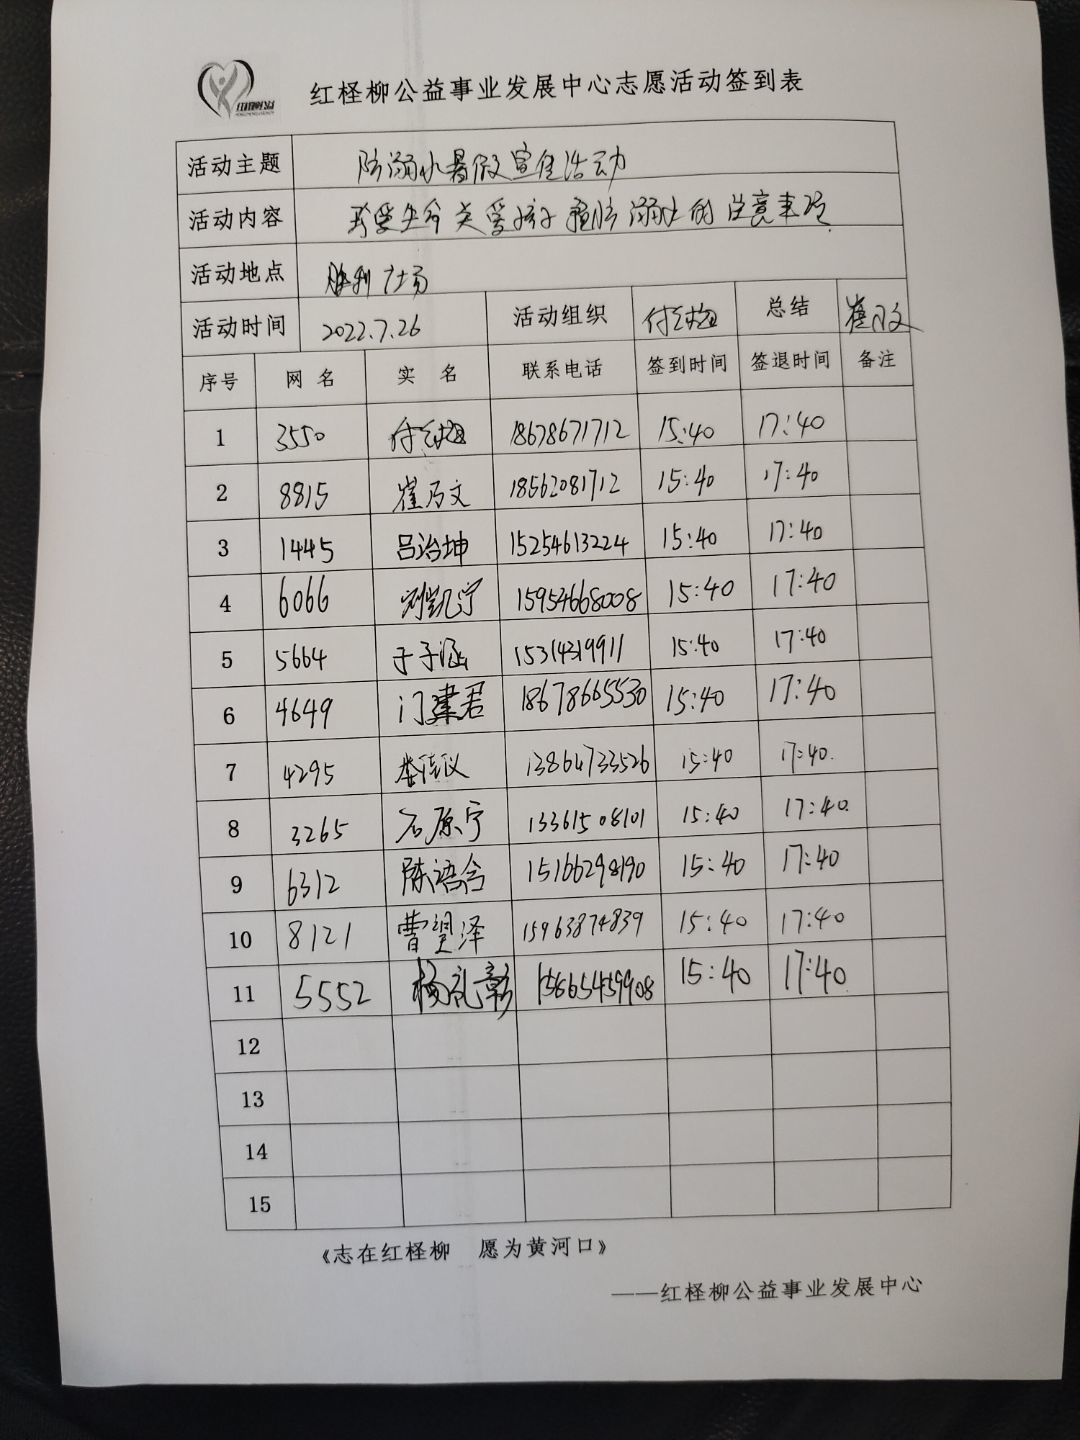 红柽柳公益事业发展中心志愿活动签到表
活动主题 防溺水暑假宣传活动
活动内容 珍爱生命关爱孩子 预防溺水的注意事项
活动地点 胜利广场
活动时间 2022.7.26 活动组织 付 总结 崔乃文
序号 网名 实名 联系电话 签到时间 签退时间 备注
1 3550 付 18678671712 15:40 17:40
2 8815 崔乃文 18562081712 15:40 17:40
3 1445 吕治坤 15254613224 15:40 17:40
4 6066 刘凯宁 15954668008 15:40 17:40
5 5664 于子涵 15314319911 15:40 17:40
6 4649 门建君 18678665530 15:40 17:40
7 4295 13864733526 15:40 17:40
8 3265 石原宁 13361508101 15:40 17:40
9 6312 陈语含 15166298190 15:40 17:40
10 8121 曹望泽 15963874839 15:40 17:40
11 5552 杨礼彰 15665459908 15:40 17:40
12
13
14
15
《志在红柽柳 愿为黄河口》
——红柽柳公益事业发展中心